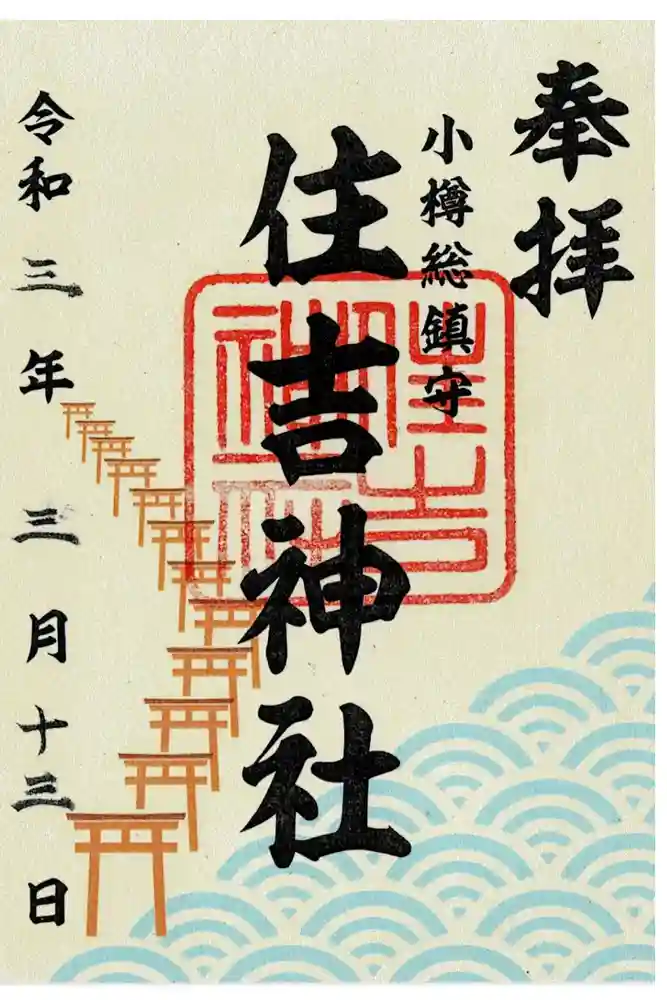 奉拝
小樽総鎮守
住吉神社
令和三年三月十三日